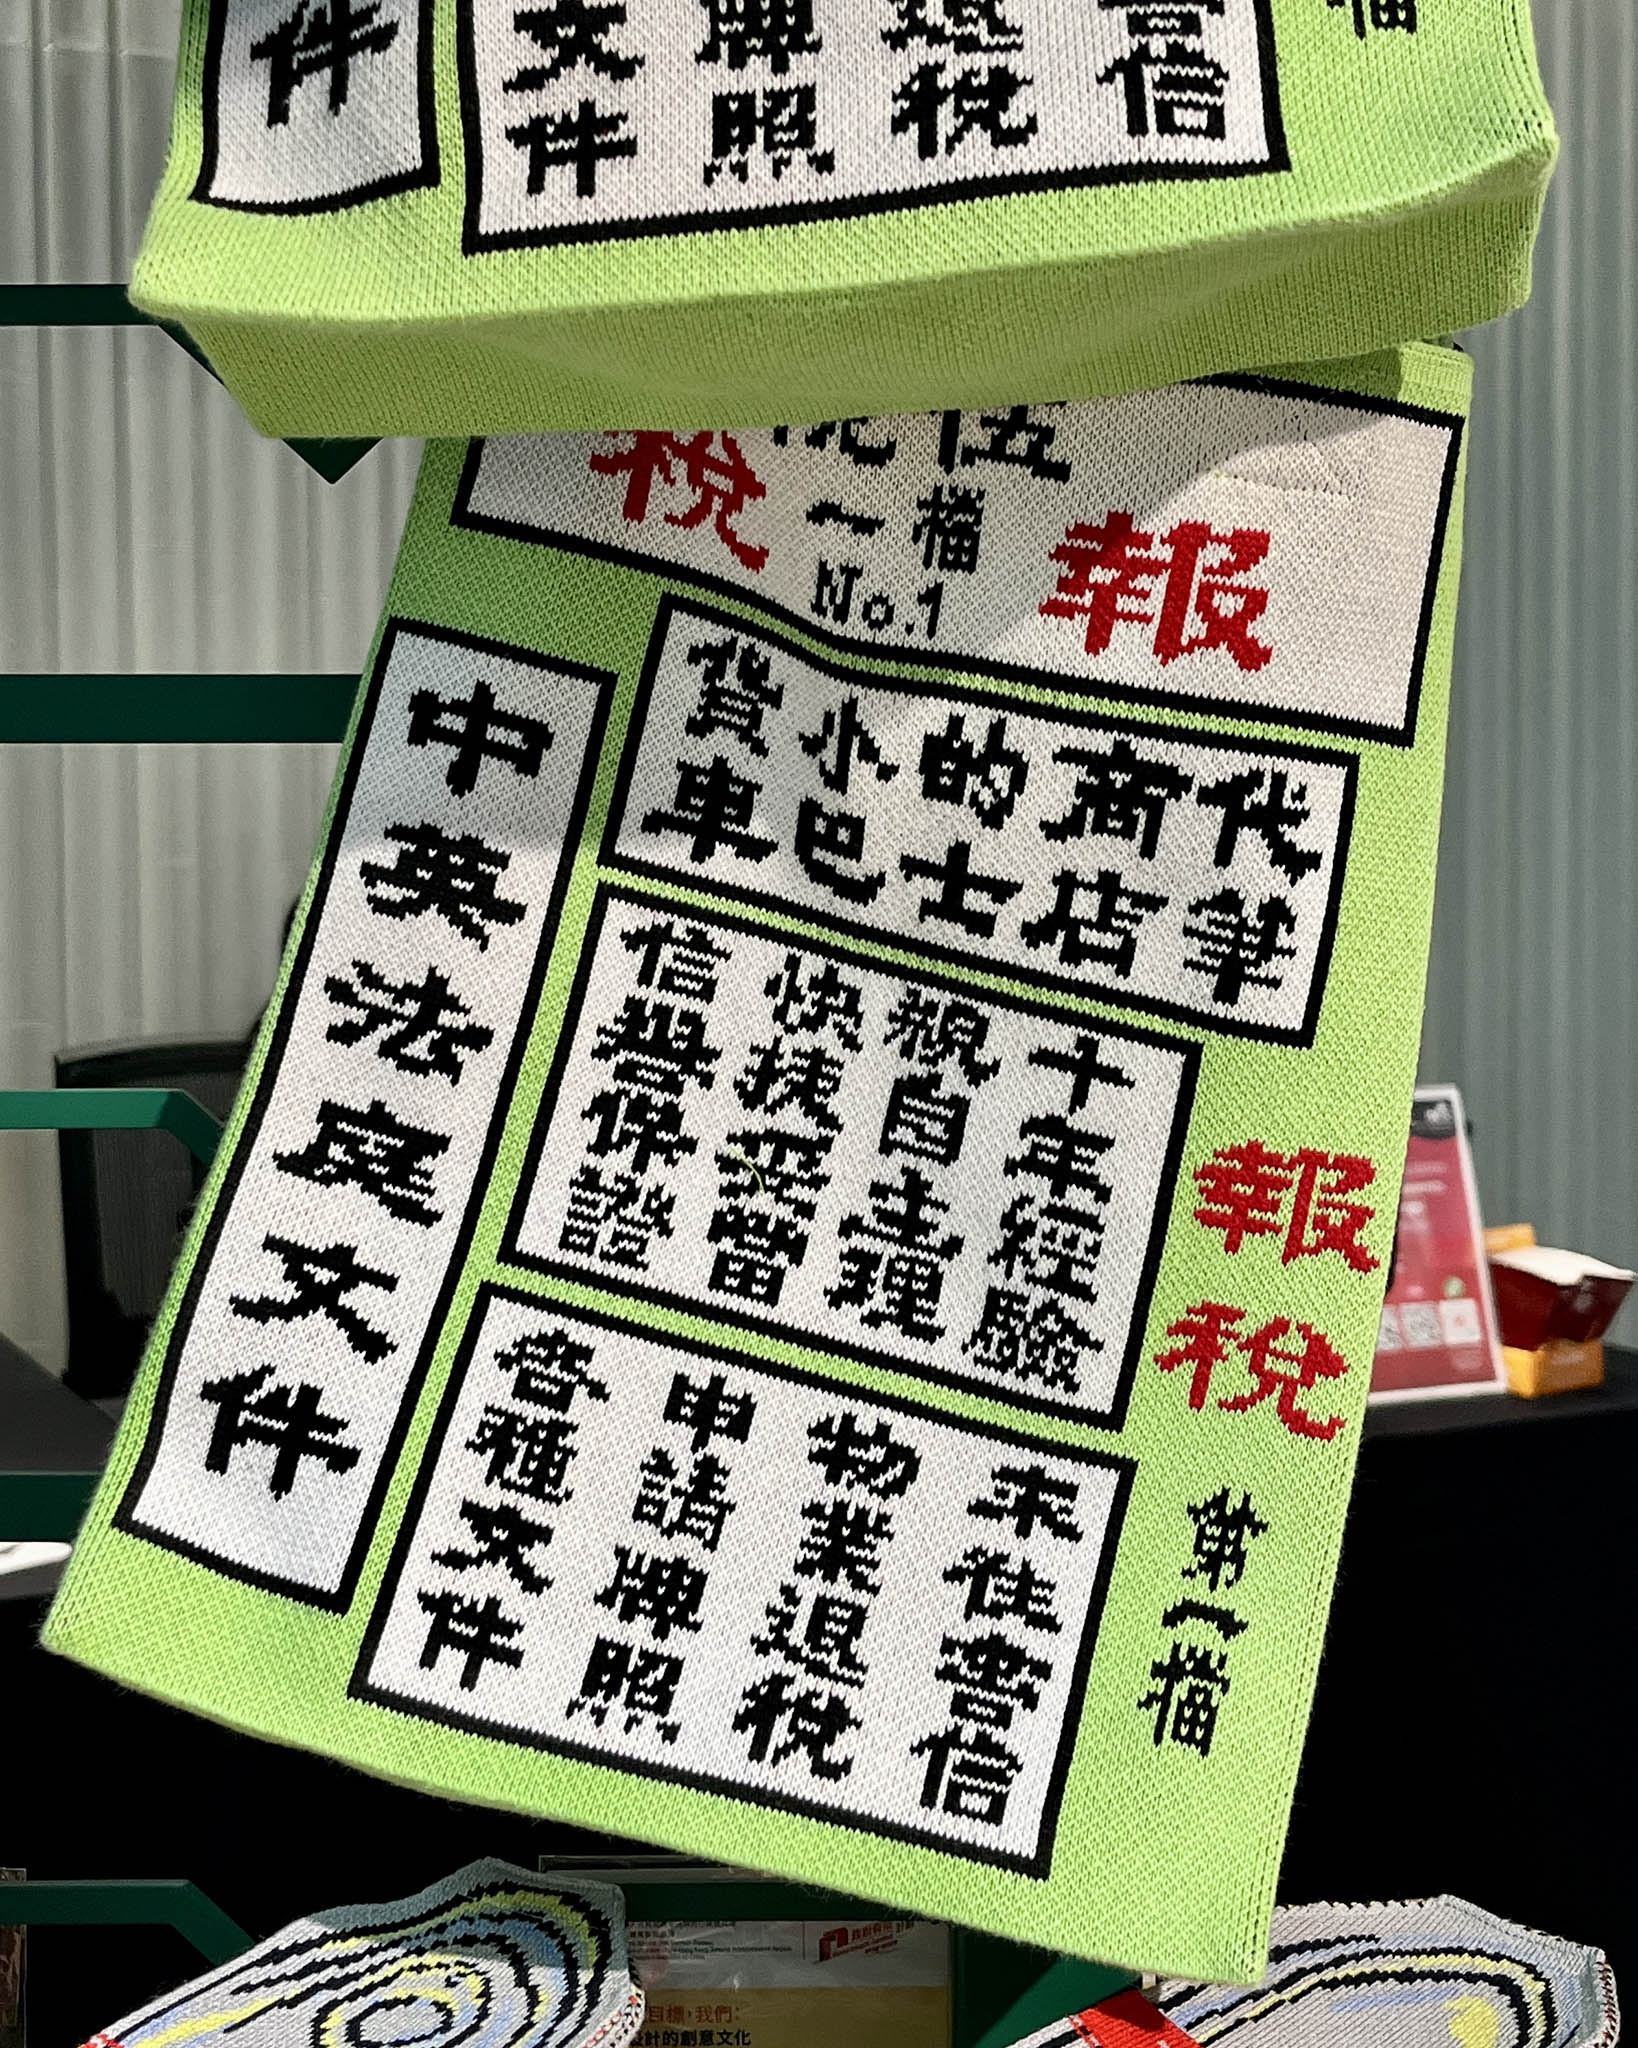 檔
書信
退稅
牌照
文件
件
報
伍
檔
一
No.1
稅
代筆
商店
的士
小巴
貨車
十年經驗
親自主理
快捷妥當
信譽保證
來往書信
物業退稅
申請牌照
各種文件
中英法庭文件
報稅
第一檔
目標，我們：
計的創意文化